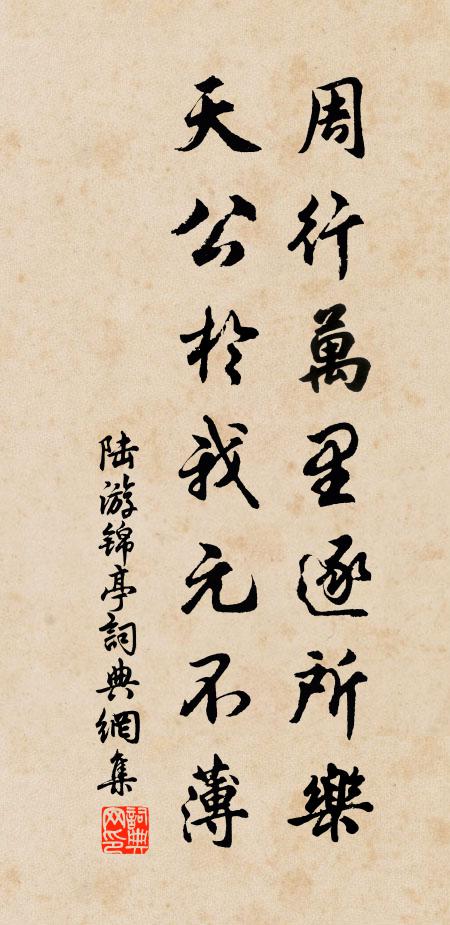 周行萬里逐所樂
天公於我元不薄
陆游锦亭詞典網集
詞典
网印